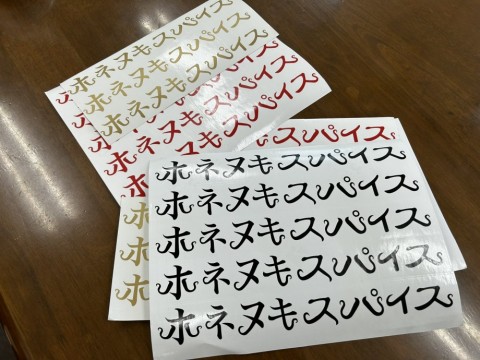 ホネヌキスパイス
ホネヌキスパイス
ホネヌキスパイス
ホネヌキスパイス
ホネヌキスパイス
スパイス
ホ
ホ
ホ
ホネヌキスパイス
ホネヌキスパイス
ホネヌキスパイス
ホネヌキスパイス
ホネヌキスパイス